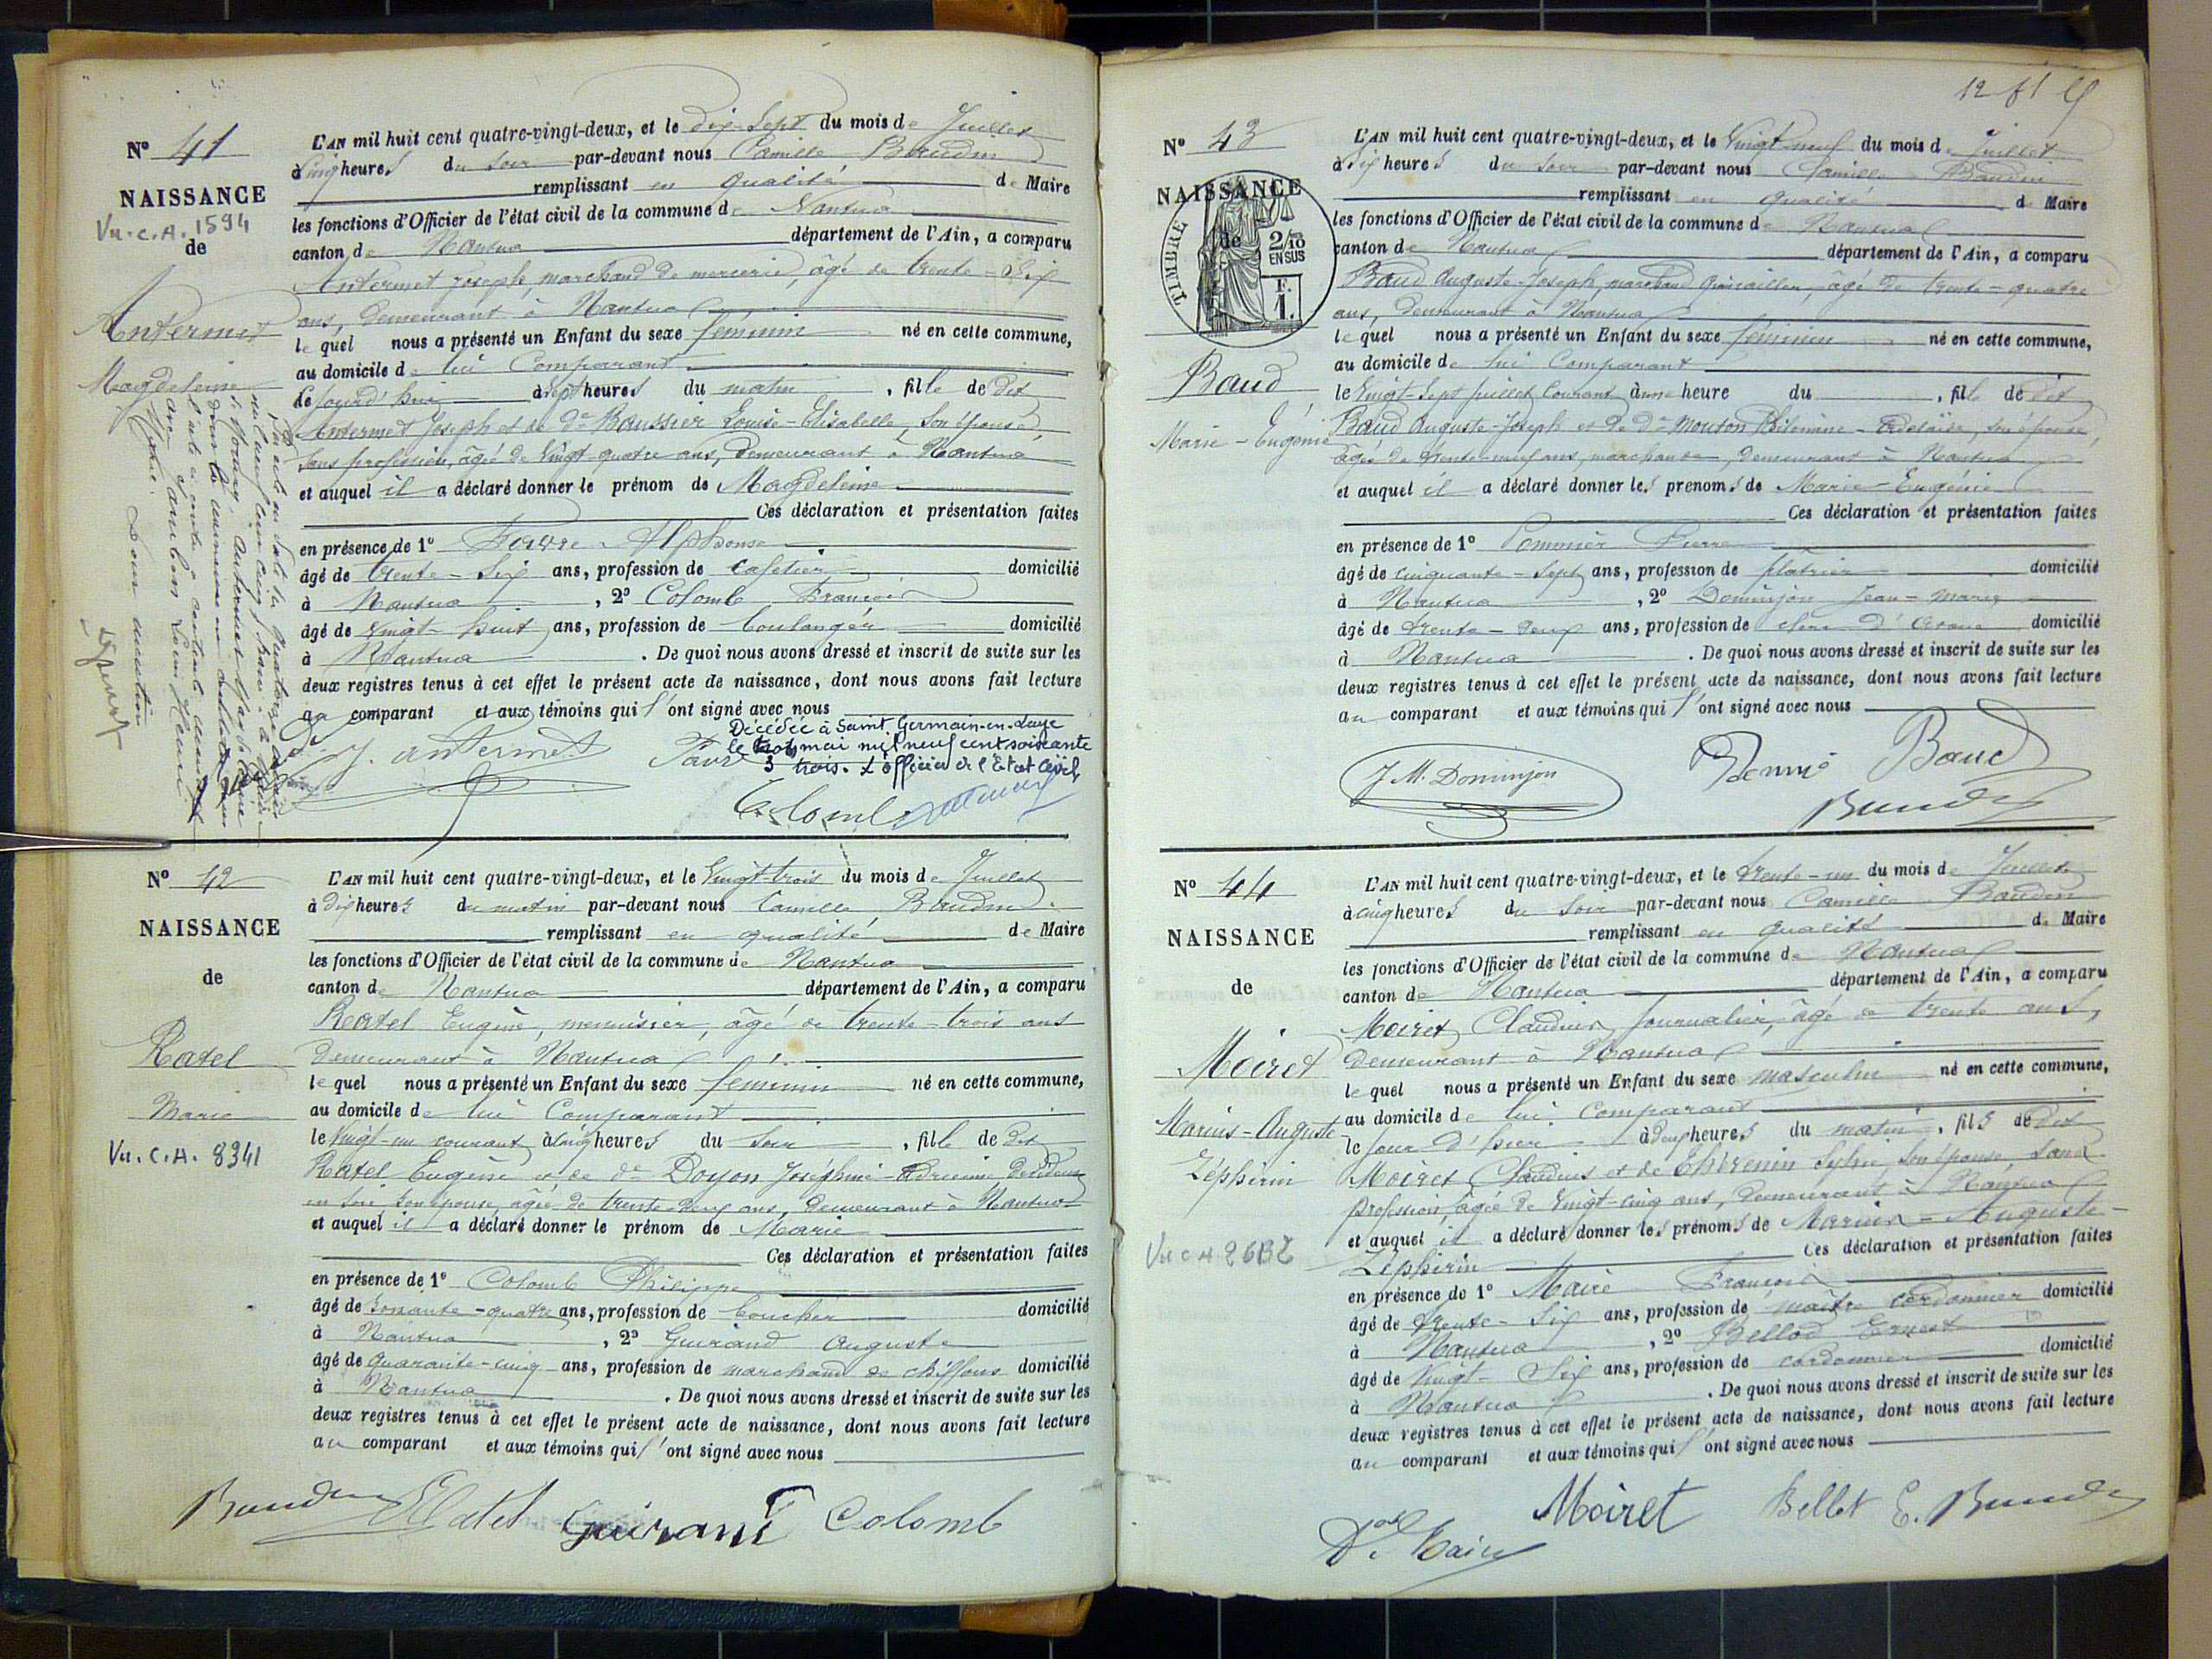 Nº 41
NAISSANCE
Vu. C. A. 1594
de
Antermet
Magdeleine
L'AN mil huit cent quatre-vingt-deux, et le dix-sept du mois de Juillet
à cinq heures du soir par-devant nous Camille Baudin
remplissant en qualité de Maire
les fonctions d'Officier de l'état civil de la commune de Nantua
canton de Nantua département de l'Ain, a comparu
Antermet Joseph, marchand de mercerie, âgé de trente-six
ans, demeurant à Nantua
lequel nous a présenté un Enfant du sexe féminin né en cette commune,
au domicile de lui Comparant
le jourd'hui à sept heures du matin, fille de dit
Antermet Joseph et de De Baussier Louise-Elisabelle, son épouse,
sans profession, âgée de vingt-quatre ans, demeurant à Nantua
et auquel il a déclaré donner le prénom de Magdeleine
Ces déclaration et présentation faites
en présence de 1º Favre Alphonse
âgé de trente-six ans, profession de cafetier domicilié
à Nantua, 2º Colomb François
âgé de vingt-huit ans, profession de boulanger domicilié
à Nantua. De quoi nous avons dressé et inscrit de suite sur les
deux registres tenus à cet effet le présent acte de naissance, dont nous avons fait lecture
au comparant et aux témoins qui l'ont signé avec nous
Décédée à Saint. Germain-en-Laye
le trois mai mil neuf cent soixante
3 trois. L'officier de l'Etat civil
J. Antermet Favre
Colomb
Nº 42
NAISSANCE
de
Ratel
Marie
Vu. C. A. 8341
L'AN mil huit cent quatre-vingt-deux, et le vingt-trois du mois de Juillet
à dix heures du matin par-devant nous Camille Baudin
remplissant en qualité de Maire
les fonctions d'Officier de l'état civil de la commune de Nantua
canton de Nantua département de l'Ain, a comparu
Ratel Eugène, menuisier, âgé de trente-trois ans
demeurant à Nantua
lequel nous a présenté un Enfant du sexe féminin né en cette commune,
au domicile de lui Comparant
le vingt-un courant à cinq heures du soir, fille de dit
Ratel Eugène et de de Doyon Joséphine-Adrienne, dévideuse
en soie, son épouse, âgée de trente-deux ans, demeurant à Nantua
et auquel il a déclaré donner le prénom de Marie
Ces déclaration et présentation faites
en présence de 1º Colomb Philippe
âgé de soixante-quatre ans, profession de boucher domicilié
à Nantua, 2º Guirand Auguste
âgé de quarante-cinq ans, profession de marchand de chiffons domicilié
à Nantua. De quoi nous avons dressé et inscrit de suite sur les
deux registres tenus à cet effet le présent acte de naissance, dont nous avons fait lecture
au comparant et aux témoins qui l'ont signé avec nous
Baudin E Ratel Guirand Colomb
Nº 43
NAISSANCE
de
TIMBRE
2/10
EN SUS
F.
1.
Baud
Marie-Eugénie
L'AN mil huit cent quatre-vingt-deux, et le vingt-neuf du mois de Juillet
à six heures du soir par-devant nous Camille Baudin
remplissant en qualité de Maire
les fonctions d'Officier de l'état civil de la commune de Nantua
canton de Nantua département de l'Ain, a comparu
Baud Auguste-Joseph, marchand quincailler, âgé de trente-quatre
ans, demeurant à Nantua
lequel nous a présenté un Enfant du sexe féminin né en cette commune,
au domicile de lui Comparant
le vingt-sept juillet courant à une heure du, fille de dit
Baud Auguste-Joseph et de De Mouton Philomine-Adelaïde, son épouse,
âgée de trente-neuf ans, marchande, demeurant à Nantua
et auquel il a déclaré donner les prénoms de Marie-Eugénie
Ces déclaration et présentation faites
en présence de 1º Pommier Pierre
âgé de cinquante-sept ans, profession de plâtrier domicilié
à Nantua, 2º Dominjon Jean-Marie
âgé de trente-deux ans, profession de clerc d'avoué domicilié
à Nantua. De quoi nous avons dressé et inscrit de suite sur les
deux registres tenus à cet effet le présent acte de naissance, dont nous avons fait lecture
au comparant et aux témoins qui l'ont signé avec nous
J. M. Dominjon Baud
Baudin
Nº 44
NAISSANCE
de
Moiret
Marius-Auguste
Zéphirin
L'AN mil huit cent quatre-vingt-deux, et le trente-un du mois de Juillet
à cinq heures du soir par-devant nous Camille Baudin
remplissant en qualité de Maire
les fonctions d'Officier de l'état civil de la commune de Nantua
canton de Nantua département de l'Ain, a comparu
Moiret Claudius, journalier, âgé de trente ans,
demeurant à Nantua
lequel nous a présenté un Enfant du sexe masculin né en cette commune,
au domicile de lui Comparant
le jour d'hier à deux heures du matin, fils de dit
Moiret Claudius et de Thévenin Sylvie, son épouse, sans
profession, âgée de vingt-cinq ans, demeurant à Nantua
et auquel il a déclaré donner les prénoms de Marius-Auguste-
Zéphirin Ces déclaration et présentation faites
en présence de 1º Maire François
âgé de trente-six ans, profession de maître cordonnier domicilié
à Nantua, 2º Bellod Ernest
âgé de vingt-six ans, profession de cordonnier domicilié
à Nantua. De quoi nous avons dressé et inscrit de suite sur les
deux registres tenus à cet effet le présent acte de naissance, dont nous avons fait lecture
au comparant et aux témoins qui l'ont signé avec nous
Moiret Bellot E. Baudin